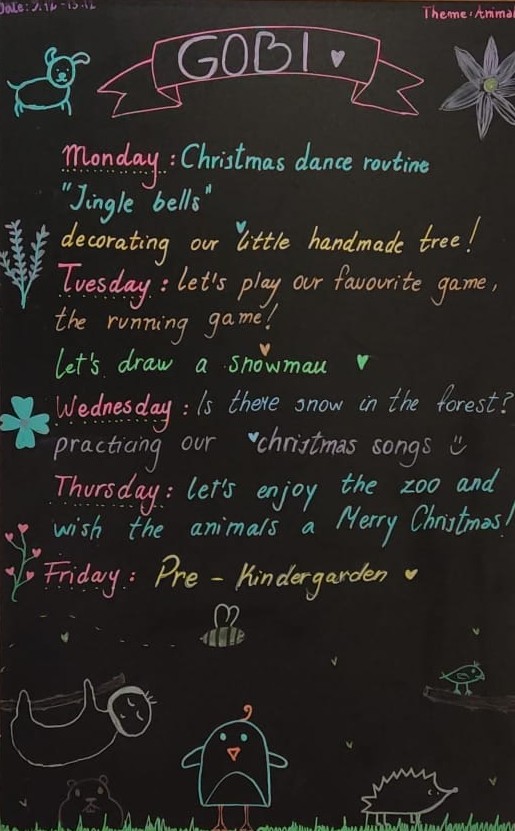 Theme: Anima
GOBI
Monday: Christmas dance routine
"Jingle bells"
decorating our little handmade tree!
Tuesday: let's play our favourite game,
the running game!
let's draw a snowman
Wednesday: Is there snow in the forest?
practicing our christmas songs
Thursday: let's enjoy the zoo and
wish the animals a Merry Christmas!
Friday: Pre - Kindergarden